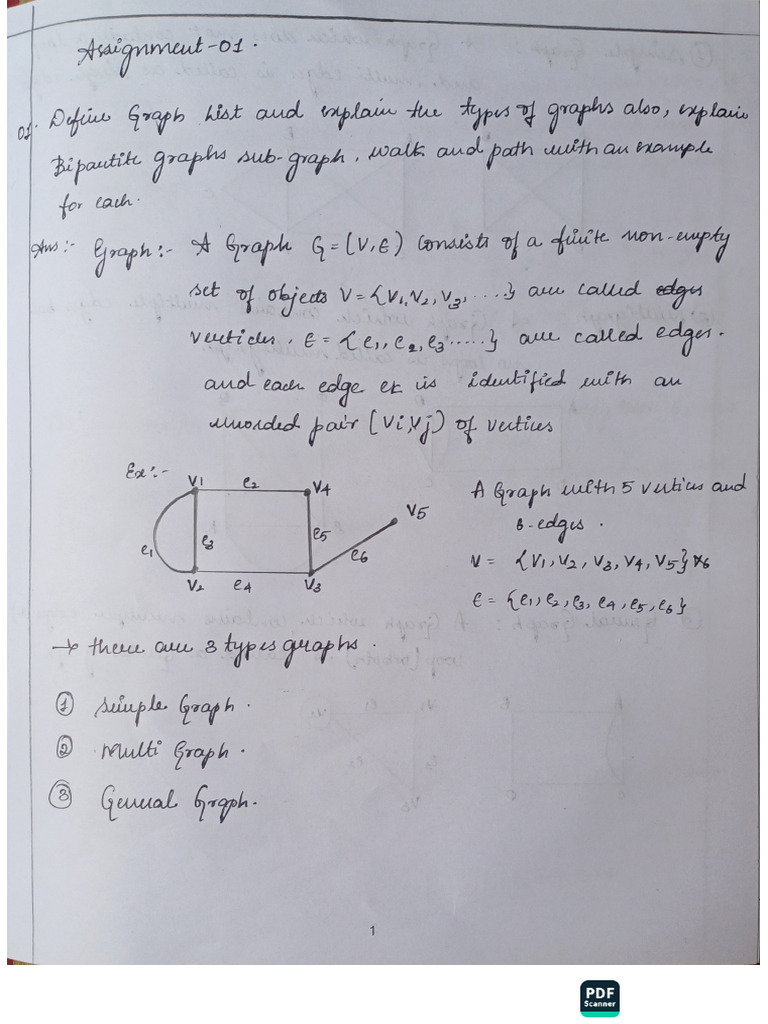 Assignment-01.
01. Define Graph List and explain the types of graphs also, explain
Bipautite graphs sub-graph, walk and path with an example
for each.
Ans :- Graph :- A Graph G = (V, E) consists of a finite non-empty
set of objects V = {V1, V2, V3, ....} are called edges
verticles, E = {e1, e2, e3 .....} are called edges.
and each edge ek is identified with an
unorded pair (Vi, Vj) of vertices
Ex :-
V1 e2 V4
V5
e1 e3 e5 e6
V2 e4 V3
A Graph with 5 vertices and
6-edges.
V = {V1, V2, V3, V4, V5}
E = {e1, e2, e3, e4, e5, e6}
→ there are 3 types graphs.
① simple Graph.
② Multi Graph.
③ General Graph.
1
PDF
Scanner